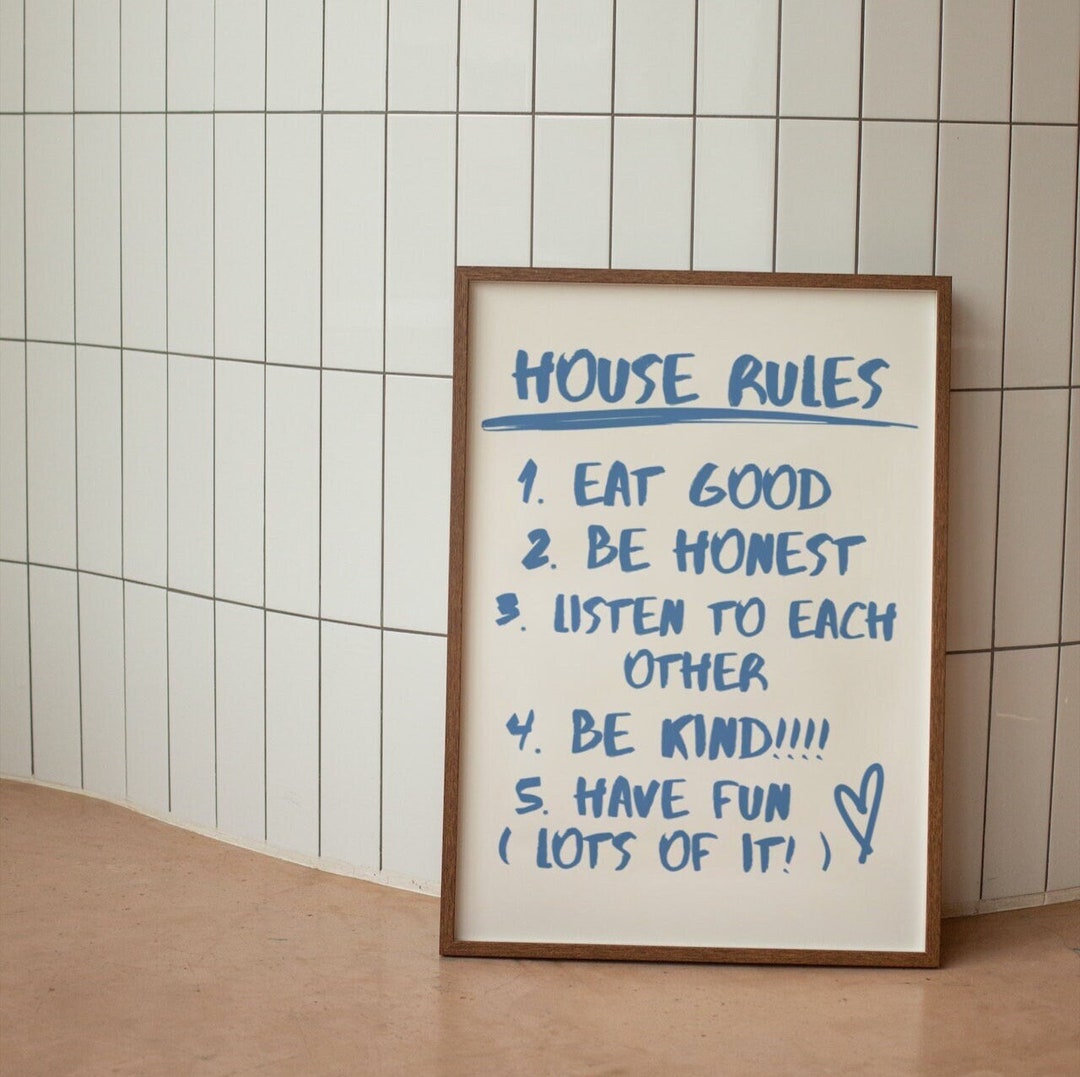 HOUSE RULES
1. EAT GOOD
2. BE HONEST
3. LISTEN TO EACH
OTHER
4. BE KIND!!!!
5. HAVE FUN
( LOTS OF IT! )